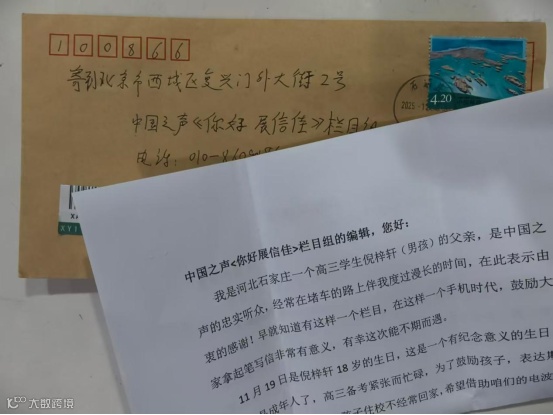 100866
寄到北京市西城区复兴门外大街2号
中国之声《你好 展信佳》栏目组
电话: 010-
4.20
中国之声<你好展信佳>栏目组的编辑，您好：
我是河北石家庄一个高三学生倪梓轩（男孩）的父亲，是中国之
声的忠实听众，经常在堵车的路上伴我度过漫长的时间，在此表示由
衷的感谢！早就知道有这样一个栏目，在这样一个手机时代，鼓励大
家拿起笔写信非常有意义，有幸这次能不期而遇。
11月19日是倪梓轩18岁的生日，这是一个有纪念意义的生日
是成年人了，高三备考紧张而忙碌，为了鼓励孩子，表达
孩子住校不经常回家，希望借助咱们的电波
大数跨境